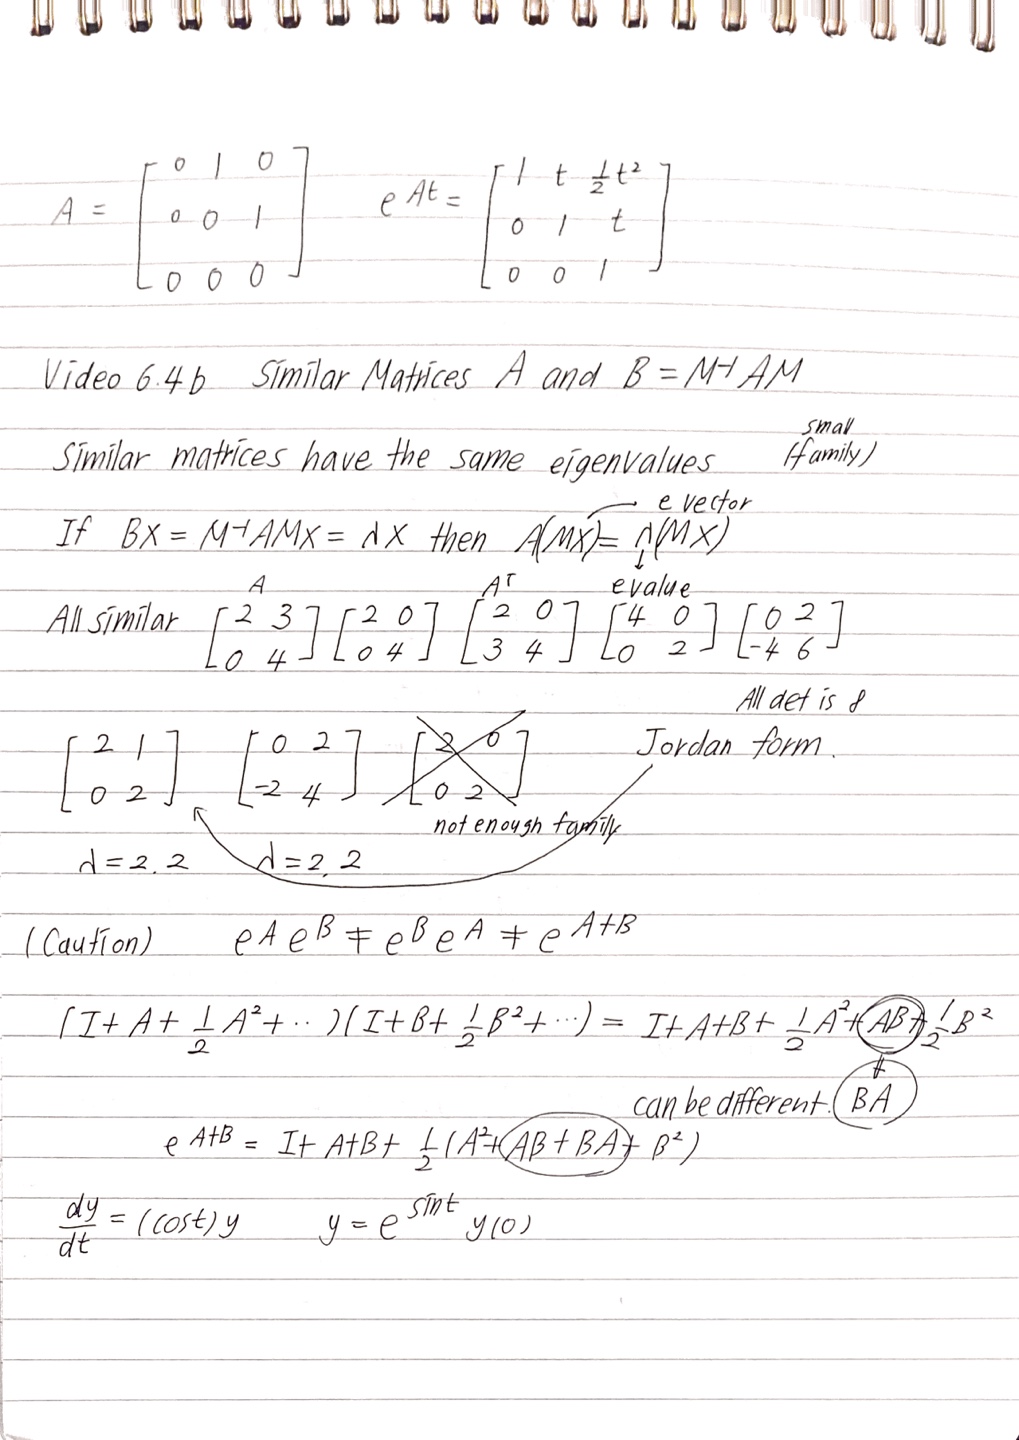 A = [0 1 0; 0 0 1; 0 0 0]   e^At = [1 t ½t²; 0 1 t; 0 0 1]
Video 6.4b Similar Matrices A and B = M⁻¹AM
small
Similar matrices have the same eigenvalues (family)
e vector
If BX = M⁻¹AMX = λX then A(MX) = λ(MX)
A   Aᵀ   evalue
All similar [2 3; 0 4] [2 0; 0 4] [2 0; 3 4] [4 0; 0 2] [0 2; -4 6]
All det is 8
[2 1; 0 2] [0 2; -2 4] [2 0; 0 2] Jordan form.
not enough family
λ=2.2   λ=2,2
(Caution) e^A e^B ≠ e^B e^A ≠ e^A+B
(I+A+½A²+··)(I+B+½B²+···) = I+A+B+½A²+AB+½B²
≠
can be different. BA
e^A+B = I+A+B+½(A²+AB+BA+B²)
dy/dt = (cost)y   y = e^sint y(0)